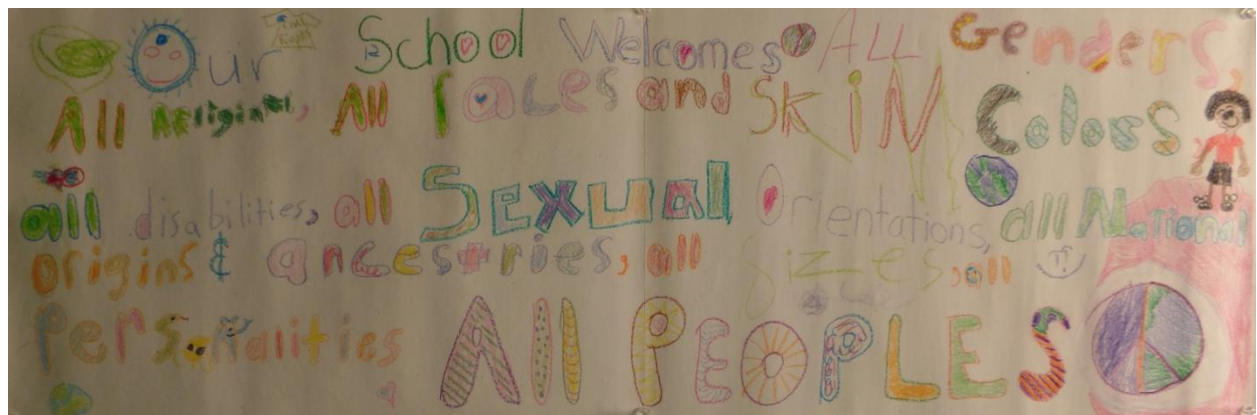 Our School Welcomes ALL Genders,
All Religions, All races and SKiN Colors
all disabilities, all Sexual Orientations, all National
origins & ancestries, all Sizes, all
Personalities All PEOPLES